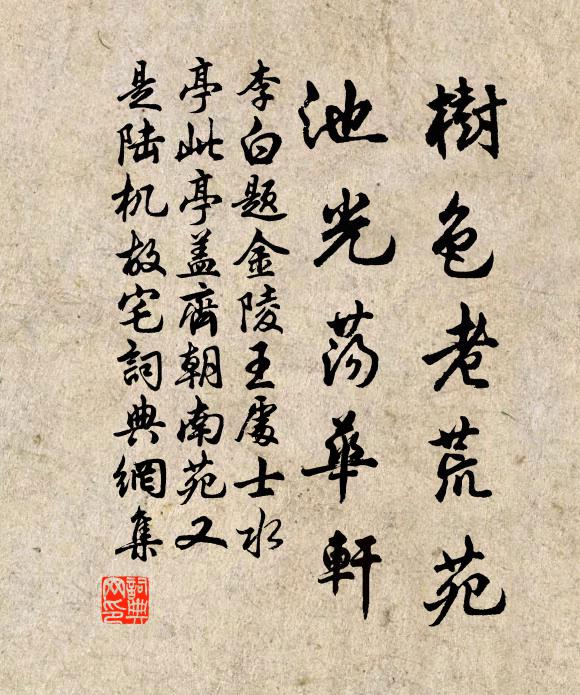 樹色老荒苑
池光蕩華軒
李白題金陵王處士水
亭此亭蓋齊朝南苑又
是陆机故宅詞典網集
詞典网印